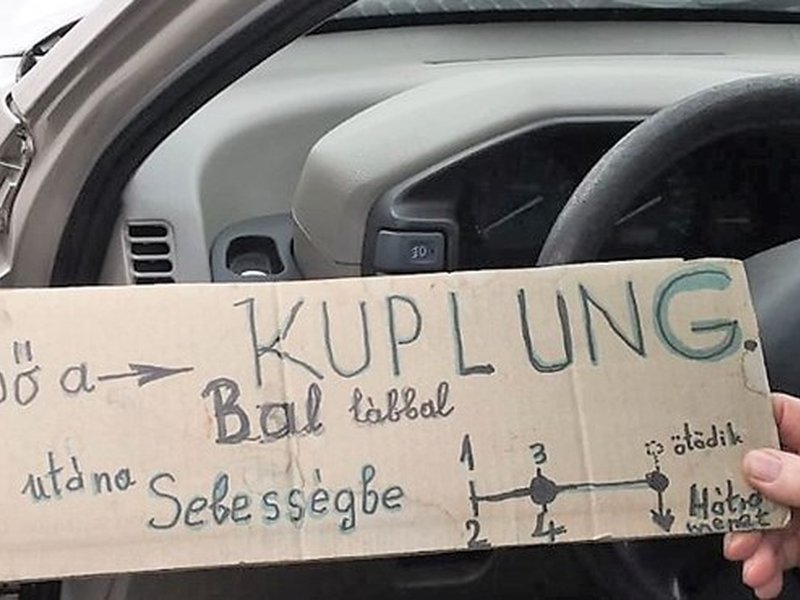 a → KUPLUNG.
Bal lábbal
utána Sebességbe
1 3 ötödik
2 4 Hátra
menet